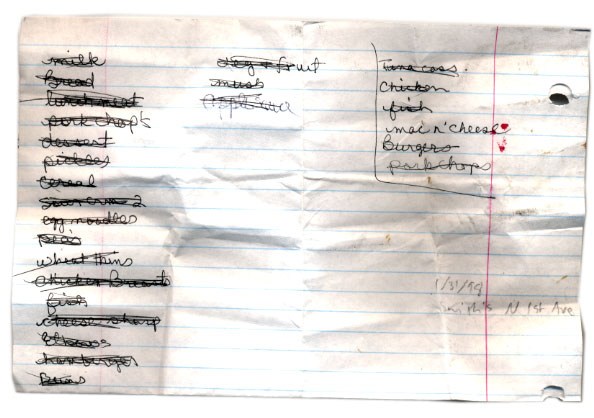 milk
Bread
lunch meat
pork chops
dessert
pickles
cereal
sour cream 2
egg noodles
peas
wheat thins
chicken Breasts
fish
cheese sharp
hamburger
Buns
veg + fruit
mush
Tuna cass.
chicken
fish
mac n' cheese
Burgers
pork chops
1/31/99
Smith's N 1st Ave